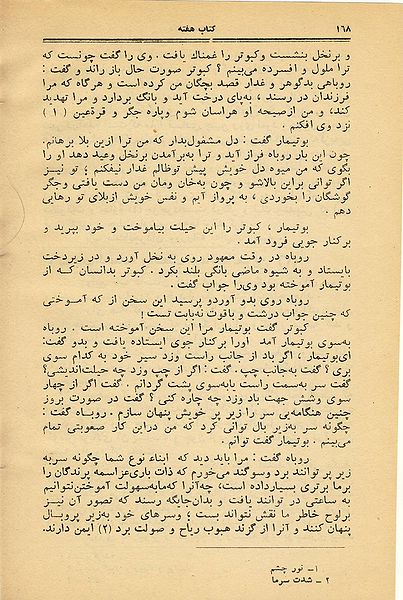 ۱۶۸
کتاب هفته
و برنخل بنشست وکبوتر را غمناك یافت . وی را گفت چونست که
ترا ملول و افسرده می‌بینم ؟ کبوتر صورت حال باز راند و گفت :
روباهی بدگوهر و غدار قصد بچگان من کرده است و هرگاه که مرا
فرزندان در رسند ، به‌پای درخت آید و بانگ بردارد و مرا تهدید
کند، و من ازصیحه او هراسان شوم وپاره جگر و قرةعین ( ۱ )
نزد وی افکنم .
بوتیمار گفت : دل مشغول‌مدار که من ترا ازین بلا برهانم.
چون این بار روباه فراز آید و ترا به‌برآمدن برنخل وعید دهد او را
بگوی که من میوه دل خویش پیش توظالم غدار نیفکنم ؛ تو نیز
اگر توانی براین بالاشو و چون به‌خان ومان من دست یافتی وجگر
گوشگان را بخوردی ، به پرواز آیم و نفس خویش ازبلای تو رهایی
دهم .
بوتیمار ، کبوتر را این حیلت بیاموخت و خود بپرید و
برکنار جویی فرود آمد .
روباه در وقت معهود روی به نخل آورد و در زیردرخت
بایستاد و به شیوه ماضی بانگی بلند بکرد . کبوتر بدانسان که از
بوتیمار آموخته بود وی‌را جواب گفت .
روباه روی بدو آوردو پرسید این سخن از که آموختی
که چنین جواب درشت و باقوت نه‌بابت تست !
کبوتر گفت بوتیمار مرا این سخن آموخته است . روباه
به‌سوی بوتیمار آمد اورا برکنار جوی ایستاده یافت و بدو گفت:
ای‌بوتیمار ، اگر باد از جانب راست وزد سیر خود به کدام سوی
بری ؟ گفت به‌جانب چپ . گفت : اگر از چپ وزد چه حیلت‌اندیشی؟
گفت سر به‌سمت راست یابه‌سوی پشت گردانم . گفت اگر از چهار
سوی وشش جهت باد وزد چه چاره کنی ؟ گفت در صورت بروز
چنین هنگامه‌یی سر را زیر پر خویش پنهان سازم . روباه گفت :
چگونه سر به‌زیر بال توانی کرد که من دراین کار صعوبتی تمام
می‌بینم . بوتیمار گفت توانم .
روباه گفت : مرا باید دید که ابناء نوع شما چگونه سربه
زیر پر توانند برد وسوگند می‌خورم که ذات باری‌عزاسمه پرندگان را
برما برتری بسیارداده است، چه‌آنرا که‌مابه‌سهولت آموختن‌نتوانیم
به ساعتی در توانند یافت و بدان‌جایگه رسند که تصور آن نیز
برلوح خاطر ما نقش نتواند بست ؛ وسرهای خود به‌زیر پروبال
پنهان کنند و آنرا از گزند هبوب ریاح و صولت برد (۲) ایمن دارند.
۱ــ نور چشم
۲ ــ شدت سرما